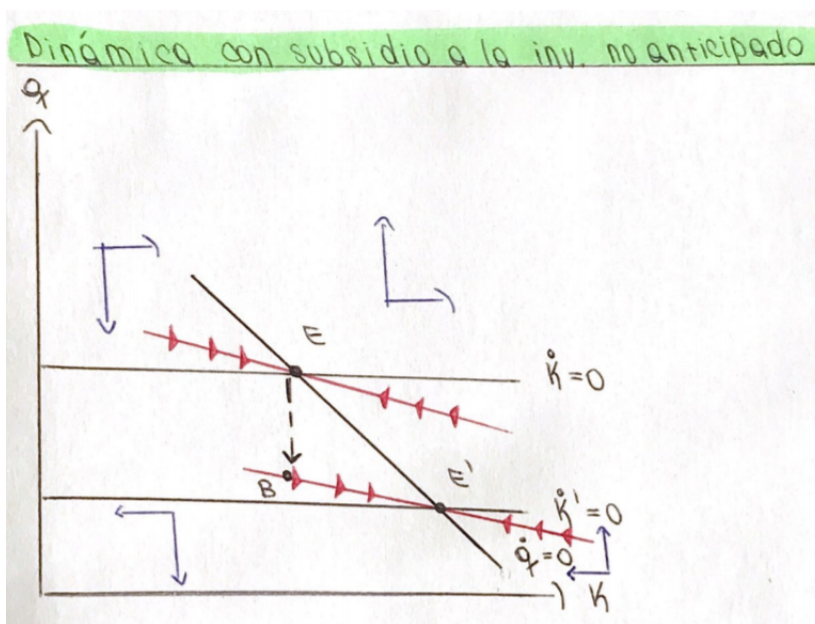 Dinámica con subsidio a la inv. no anticipado
q
E
K̇ = 0
B
E'
K̇' = 0
q̇ = 0
K